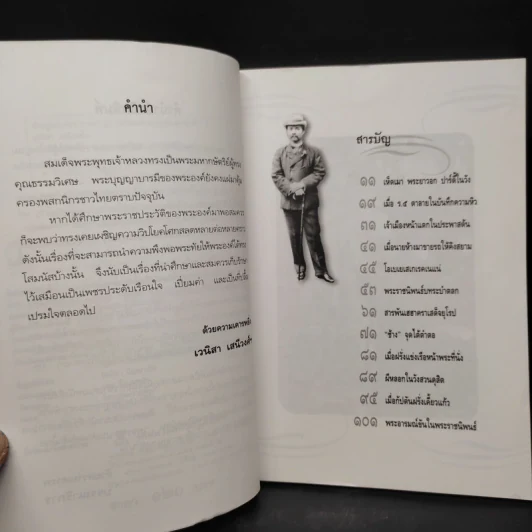 คำนำ
สมเด็จพระพุทธเจ้าหลวงทรงเป็นพระมหากษัตริย์ผู้ทรง
คุณธรรมวิเศษ พระบุญญาบารมีของพระองค์ยังคงแผ่มาคุ้ม
ครองพสกนิกรชาวไทยตราบปัจจุบัน
หากได้ศึกษาพระราชประวัติของพระองค์มาพอสมควร
ก็จะพบว่าทรงเคยเผชิญความวิปโยคโศกสลดหลาย
ดังนั้นเรื่องที่จะสามารถนำความพึงพอพระทัยให้พระองค์ได้ทรง
โสมนัสบ้างนั้น จึงนับเป็นเรื่องที่น่าศึกษาและสมควรเก็บรักษา
ไว้เสมือนเป็นเพชรประดับเรือนใจ เปี่ยมค่า และเป็นที่
เปรมใจตลอดไป
ด้วยความเคารพยิ่ง
เวนิสา เสนีวงศ์ฯ
สารบัญ
๑๑ เห็ดเมา พระยาวอก ปาร์ตี้ในวัง
๑๙ เมื่อ ร.๕ ตาลายในบันทึกความหิว
๓๑ เจ้าเมืองหน้าแตกในประพาสต้น
๔๑ เมื่อนายห้างมาขายรถให้คิงสยาม
๔๕ โลเบเยเสเกเรคเนแน่
๕๓ พระราชนิพนธ์บทระบำตลก
๖๑ สารพันเฮฮาคราเสด็จยุโรป
๗๑ "ช้าง" จุดใต้ตำตอ
๘๑ เมื่อฝรั่งแข่งเรือหน้าพระที่นั่ง
๘๙ ผีหลอกในวังสวนดุสิต
๙๕ เมื่อกัปตันฝรั่งเคี้ยวแก้ว
๑๐๑ พระอารมณ์ขันในพระราชนิพนธ์